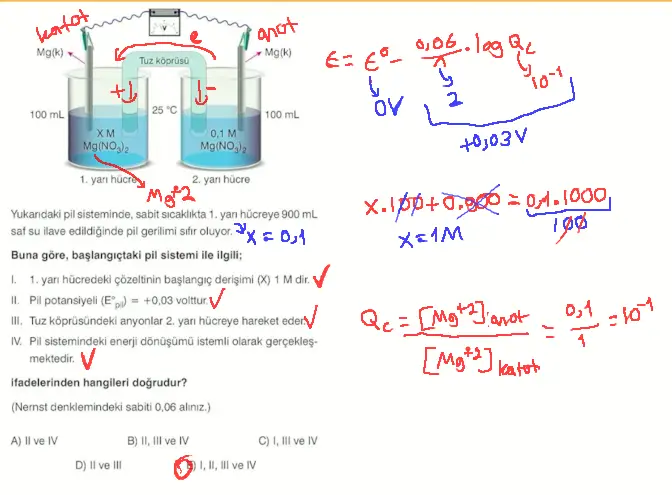 katot
anot
e
V
Mg(k)
Mg(k)
Tuz köprüsü
+
-
100 mL
25 °C
100 mL
X M
Mg(NO3)2
0,1 M
Mg(NO3)2
1. yarı hücre
2. yarı hücre
Mg+2
Yukarıdaki pil sisteminde, sabit sıcaklıkta 1. yarı hücreye 900 mL
saf su ilave edildiğinde pil gerilimi sıfır oluyor. x = 0,1
Buna göre, başlangıçtaki pil sistemi ile ilgili;
I. 1. yarı hücredeki çözeltinin başlangıç derişimi (X) 1 M dir.
II. Pil potansiyeli (E°pil) = +0,03 volttur.
III. Tuz köprüsündeki anyonlar 2. yarı hücreye hareket eder.
IV. Pil sistemindeki enerji dönüşümü istemli olarak gerçekleş-
mektedir.
ifadelerinden hangileri doğrudur?
(Nernst denklemindeki sabiti 0,06 alınız.)
A) II ve IV
B) II, III ve IV
C) I, III ve IV
D) II ve III
E) I, II, III ve IV
ε = ε° - 0,06/n . log Qc
0V
2
10-1
+0,03V
x.100 + 0.900 = 0,1.1000
100
x = 1M
Qc = [Mg+2] anot / [Mg+2] katot = 0,1 / 1 = 10-1